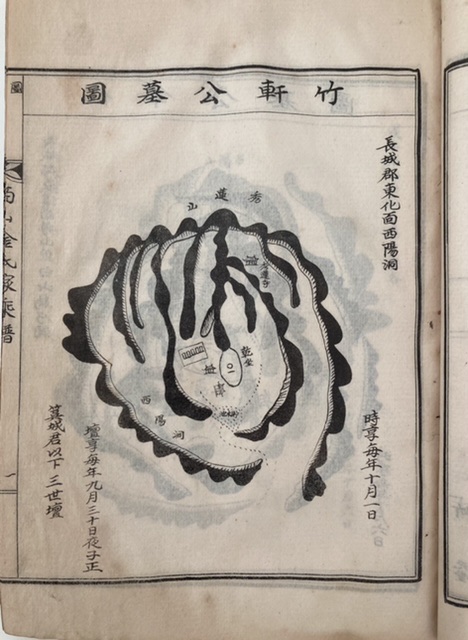 竹軒公墓圖
長城郡東化面西陽洞
時享每年十月一日
秀蓮山
乾坐
西陽洞
壇享每年九月三十日夜子正
箕城君以下三世壇
金氏家乘譜